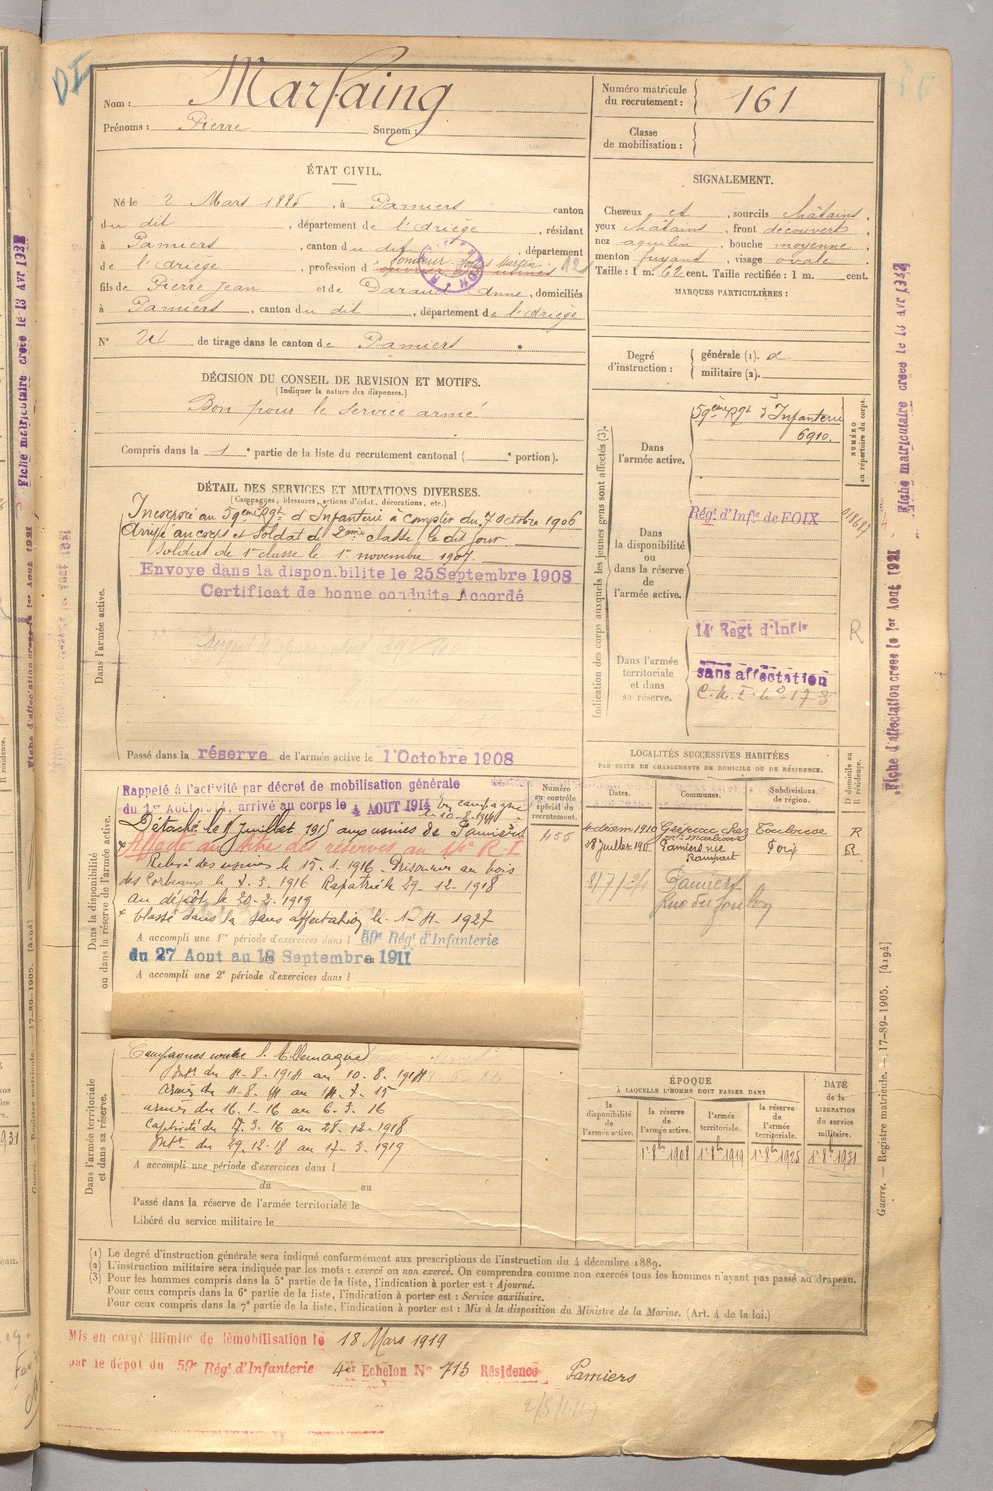 Nom : Marfaing
Prénoms : Pierre Surnom :
Numéro matricule
du recrutement : 161
Classe
de mobilisation :
ÉTAT CIVIL.
Né le 2 Mars 1885, à Pamiers canton
du dit, département de l'Ariège, résidant
à Pamiers, canton du dit, département
de l'Ariège, profession d
fils de Pierre Jean et de Daraud Anne, domiciliés
à Pamiers, canton du dit, département de l'Ariège
N° de tirage dans le canton de Pamiers
SIGNALEMENT.
Cheveux et, sourcils châtains,
yeux châtains, front découvert,
nez aquilin, bouche moyenne
menton fuyant, visage ovale
Taille : 1 m. 62 cent. Taille rectifiée : 1 m. cent.
MARQUES PARTICULIÈRES :
Degré
d'instruction : générale (1). 2
militaire (2).
DÉCISION DU CONSEIL DE REVISION ET MOTIFS.
(Indiquer la nature des dispenses.)
Bon pour le Service armé
Compris dans la 1e partie de la liste du recrutement cantonal ( e portion).
DÉTAIL DES SERVICES ET MUTATIONS DIVERSES.
(Campagnes, blessures, actions d'éclat, décorations, etc.)
Dans l'armée active.
Incorporé au 59ème Rgt d'Infanterie à compter du 7 octobre 1906
Arrivé au corps et Soldat de 2ème classe le dit jour
Soldat de 1e classe le 1er novembre 1907.
Envoyé dans la disponibilité le 25 Septembre 1908
Certificat de bonne conduite Accordé
Passé dans la réserve de l'armée active le 1 Octobre 1908
Indication des corps auxquels les jeunes gens sont affectés (3).
NUMÉRO
au répertoire du corps.
Dans
l'armée active.
59ème Rgt d'Infanterie
6910.
Dans
la disponibilité
ou
dans la réserve
de
l'armée active.
Rég. d'Infie de FOIX
Dans l'armée
territoriale
et dans
sa réserve.
14e Régt d'Infie
sans affectation
R
Dans la disponibilité
ou dans la réserve de l'armée active.
Rappelé à l'activité par décret de mobilisation générale
du 1er Août 1914, arrivé au corps le 4 AOUT 1914 En campagne
le 10-8-1914
Détaché le 11 Juillet 1915 aux usines de Pamiers
Affecté au titre des réserves au 14e R-I
Relevé des usines le 15-1-1916 Prisonnier au bois
des Corbeaux le 7-3-1916 Rapatrié le 29-12-1918
au dépôt le 20-2-1919
Classé dans la Sans affectation le 1-11-1927
A accompli une 1re période d'exercices dans l 59e Rég. d'Infanterie
du 27 Aout au 18 Septembre 1911
A accompli une 2e période d'exercices dans l
Numéro
au contrôle
spécial du
recrutement.
455
LOCALITÉS SUCCESSIVES HABITÉES
PAR SUITE DE CHANGEMENTS DE DOMICILE OU DE RÉSIDENCE.
Dates. Communes. Subdivisions
de région. D domicile ou
R résidence.
4 décem. 1910 Toulouse R
18 juillet 1911 Pamiers rue Foix R
Rempart
8/7/24 Pamiers
Rue du
Dans l'armée territoriale
et dans sa réserve.
Campagnes contre l'Allemagne
Intr du 4-8-1914 au 10-8-1914
armées du 11-8-14 au 14-7-15
armées du 16-1-16 au 6-3-16
captivité du 7-3-16 au 28-12-1918
Intr du 29-12-18 au 17-3-1919
A accompli une période d'exercices dans l
du au
Passé dans la réserve de l'armée territoriale le
Libéré du service militaire le
ÉPOQUE
À LAQUELLE L'HOMME DOIT PASSER DANS
la
disponibilité
de
l'armée active. la réserve
de
l'armée active. l'armée
territoriale. la réserve
de l'armée
territoriale. DATE
de la
LIBÉRATION
du service
militaire.
1er 8bre 1908 1er 8bre 1919 1er 8bre 1925 1er 8bre 1931
(1) Le degré d'instruction générale sera indiqué conformément aux prescriptions de l'instruction du 4 décembre 1889.
(2) L'instruction militaire sera indiquée par les mots : exercé ou non exercé. On comprendra comme non exercés tous les hommes n'ayant pas passé au drapeau.
(3) Pour les hommes compris dans la 5e partie de la liste, l'indication à porter est : Ajourné.
Pour ceux compris dans la 6e partie de la liste, l'indication à porter est : Service auxiliaire.
Pour ceux compris dans la 7e partie de la liste, l'indication à porter est : Mis à la disposition du Ministre de la Marine. (Art. 4 de la loi.)
Mis en congé illimité de démobilisation le 18 Mars 1919
par le dépôt du 59e Rég. d'Infanterie 4er Echelon N° 713 Résidence Pamiers
Fiche matriculaire créée le 13 Avr 1927
Fiche d'affectation créée le 1er Août 1921
Guerre. — Registre matricule. — 17-89-1905. [4194]